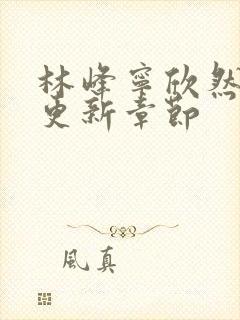 林峰寧欣然
更新章節
風真